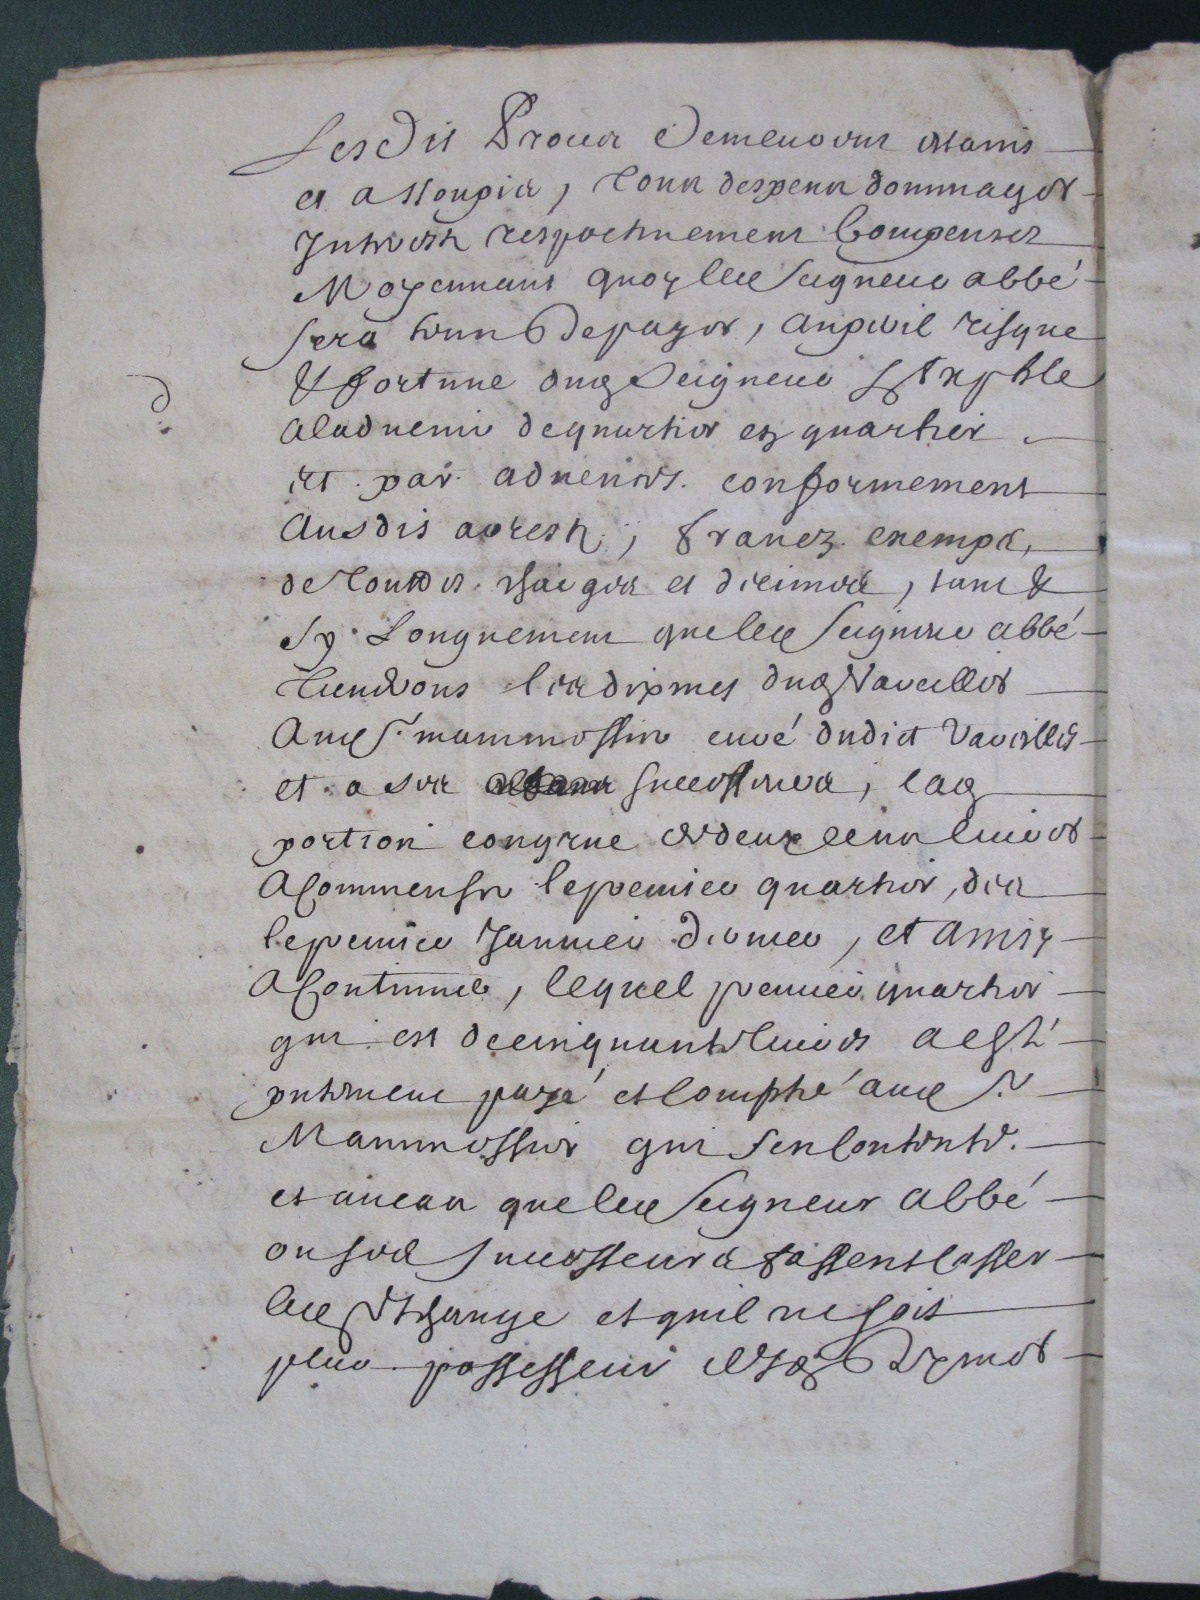 Lesdis Proces demeurent estains
et assoupis, tous despens dommages
Interests respectivement Compensez
Moyennant quoy led Seigneur abbé
sera tenu de payer, au peril risque
& fortune dud Seigneur
aladvenir de quartier en quartier
et par advenirs conformement
ausdis arests, francz exemps,
de touttes charges et decimes, tant &
sy Longuement que led Seigneur abbé
tiendrons les dixmes dud Vaucelles
aud Sr. mammossier curé dudict
et a ses successeurs, lad
portion congrue de deux cens livres
a Commenser le premier quartier, des
le premier Janvier dernier, et ainsy
a Continuer, lequel premier quartier
qui est de cinquante livres a esté
payé et Compté aud Sr
Mammossier qui sen Contente.
et en cas que led Seigneur abbé
ou ses successeurs fassent casser
led Eschange et quil ne soit
plus possesseur desd dixmes